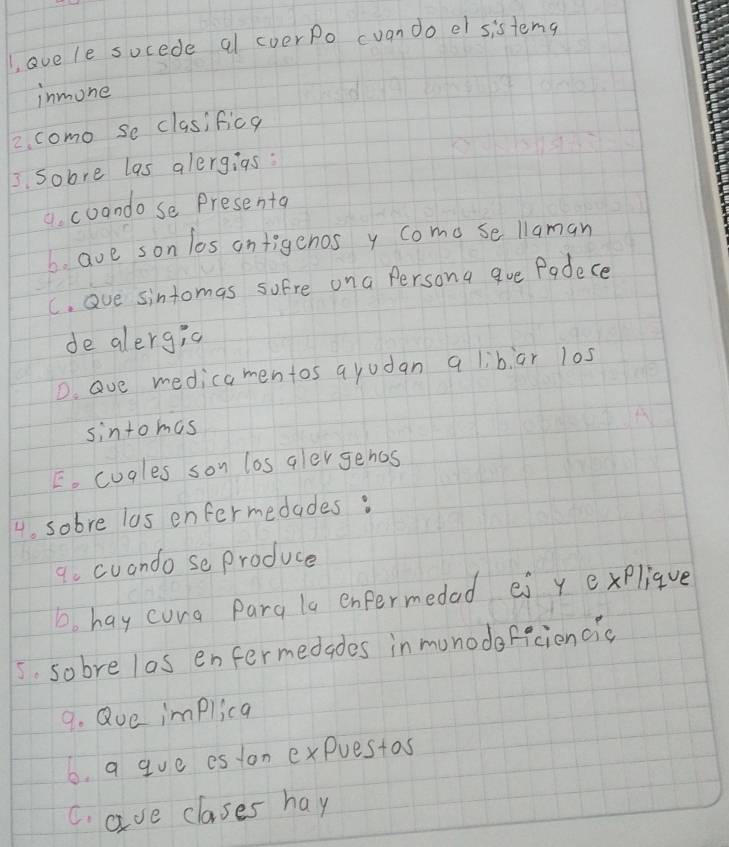 1. Que le sucede al cuerpo cuando el sistema
inmone
2. como se clasifica
3. sobre las alergias:
a. cuando se Presenta
b. que son los antigenos y como se llaman
C. Que sintomas sufre una Persona que Padece
de alergia
D. Que medicamentos ayudan a libiar los
sintomas
E. cuales son los alergenos
4. sobre las enfermedades:
a. cuando se produce
b. hay cura para la enfermedad ej y explique
5. sobre las enfermedades inmunodeficiencia
a. Que implica
b. a que estan expuestos
C. que clases hay